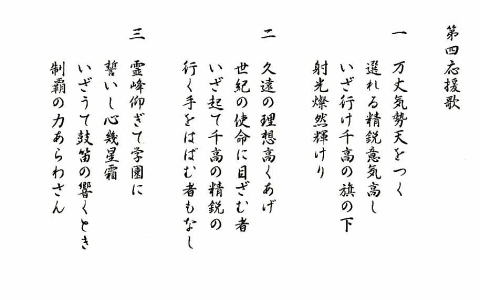 第四応援歌
一 万丈気勢天をつく
選れる精鋭意気高し
いざ行け千高の旗の下
射光燦然輝けり
二 久遠の理想高くあげ
世紀の使命に目ざむ者
いざ起て千高の精鋭の
行く手をはばむ者もなし
三 霊峰仰ぎて学園に
誓いし心幾星霜
いざうて鼓笛の響くとき
制覇の力あらわさん